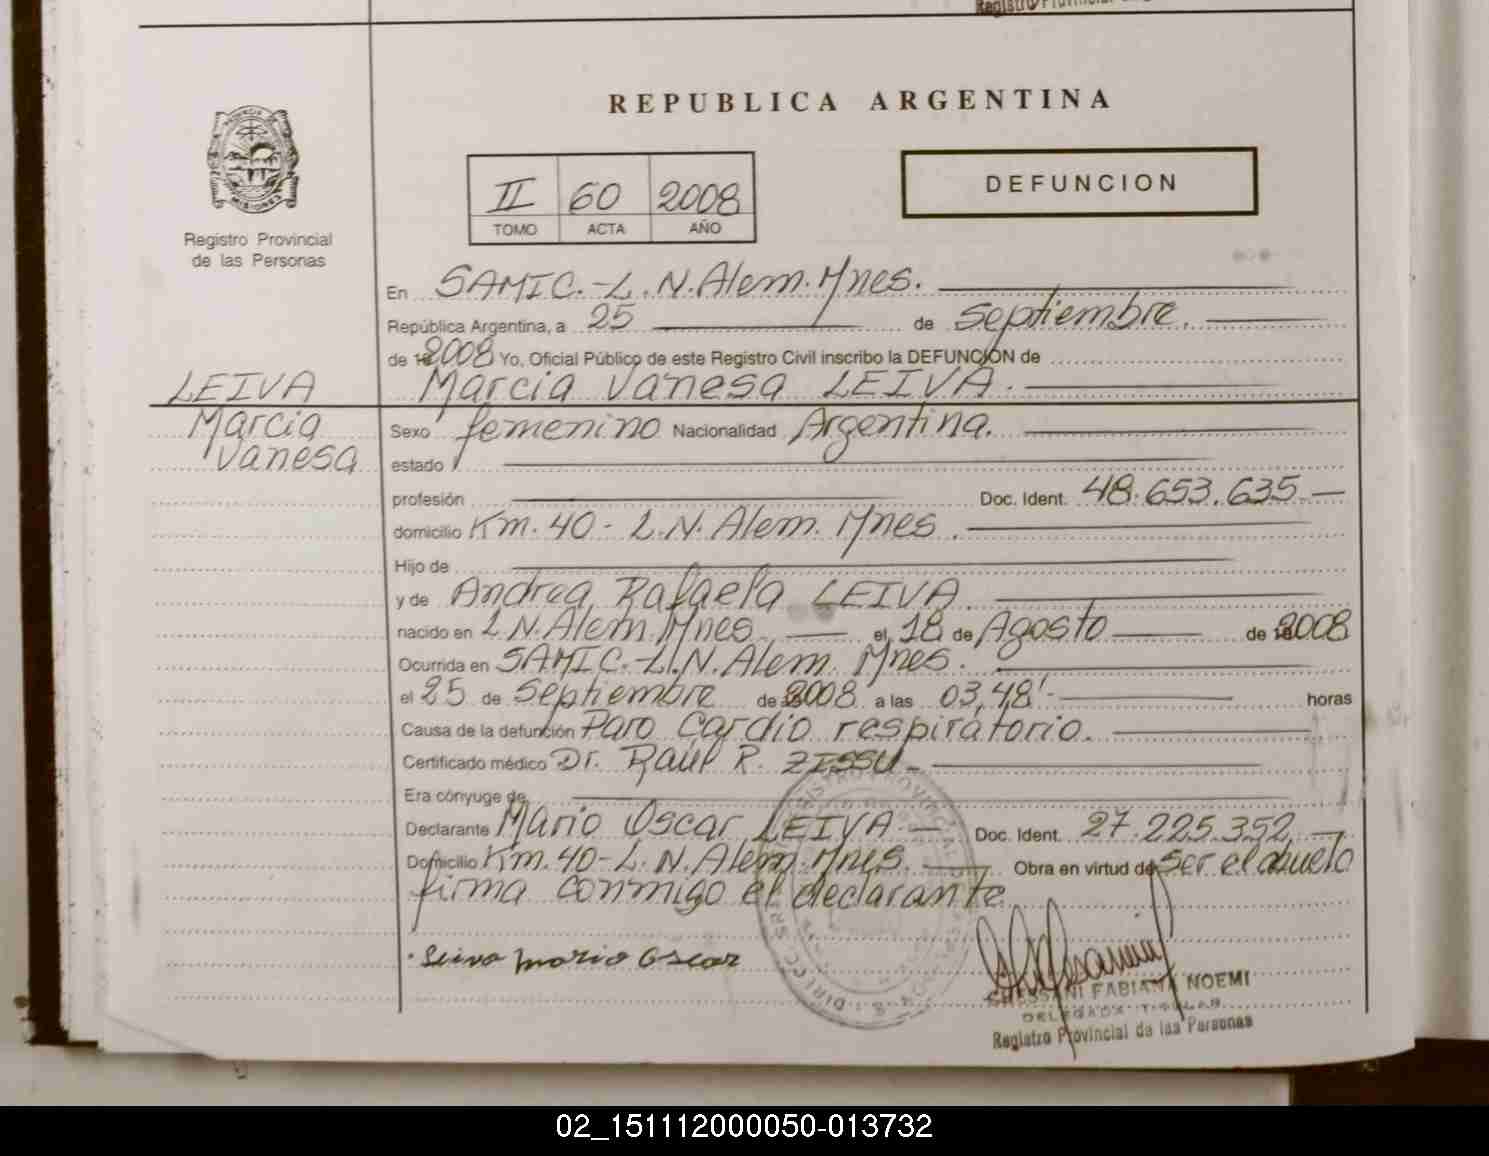 Registro Provincial
REPUBLICA ARGENTINA
PROVINCIA DE MISIONES
Registro Provincial
de las Personas
II 60 2008
TOMO ACTA AÑO
DEFUNCION
En SAMIC.-L.N.Alem.Mnes.
República Argentina, a 25 de Septiembre.
de 2008 Yo, Oficial Público de este Registro Civil inscribo la DEFUNCIÓN de
LEIVA Marcia Vanesa LEIVA.
Marcia Sexo femenino Nacionalidad Argentina.
Vanesa estado
profesión Doc. Ident. 48.653.635.-
domicilio Km. 40 - L.N. Alem. Mnes.
Hijo de
y de Andrea Rafaela LEIVA.
nacido en L.N.Alem.Mnes. el 18 de Agosto de 2008
Ocurrida en SAMIC.-L.N. Alem. Mnes.
el 25 de Septiembre de 2008 a las 03,48'- horas
Causa de la defunción Paro Cardio respiratorio.
Certificado médico Dr. Raúl R. ZISSU-
Era cónyuge de
Declarante Mario Oscar LEIVA.- Doc. Ident. 27.225.352.-
Domicilio Km. 40-L.N.Alem.Mnes. Obra en virtud de Ser el abuelo
firma conmigo el declarante.
Leiva mario Oscar
FABIANA NOEMI
DELEGADA TITULAR
Registro Provincial de las Personas
02_151112000050-013732